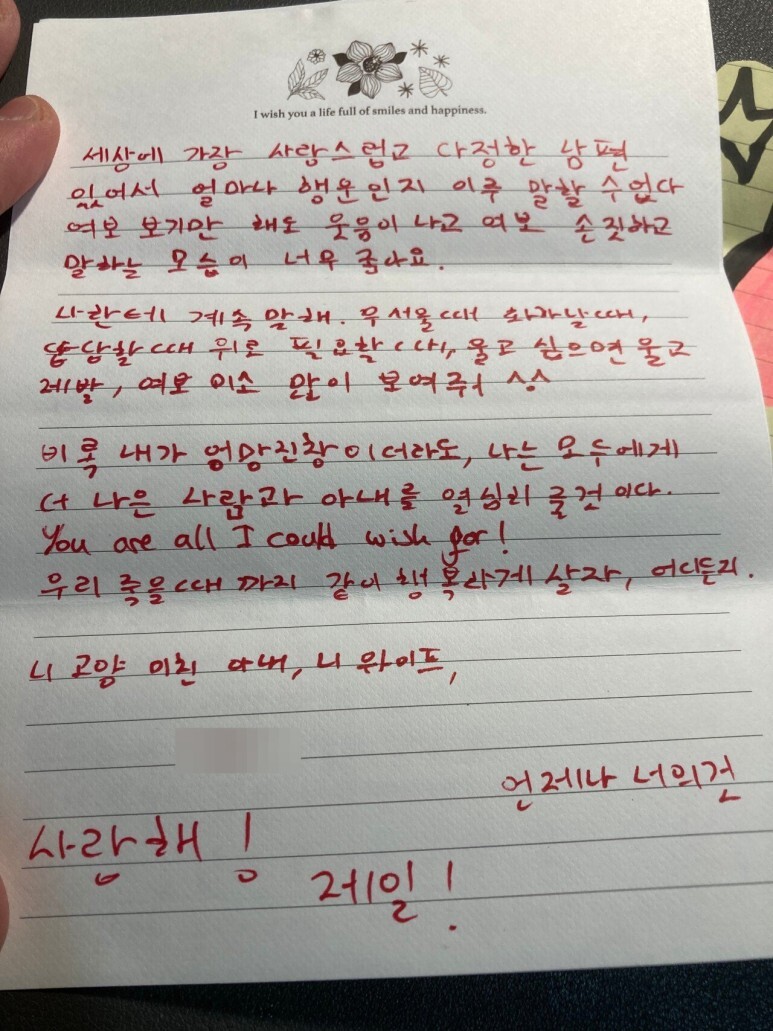 I wish you a life full of smiles and happiness.
세상에 가장 사랑스럽고 다정한 남편
있어서 얼마나 행운인지 이루 말할 수없다
여보 보기만 해도 웃음이 나고 여보 손짓하고
말하는 모습이 너무 좋나요.
나한테 계속 말해. 무서울때 화가날때,
답답할때 위로 필요할때, 울고 싶으면 울고
제발, 여보 미소 많이 보여줘 ^^
비록 내가 엉망진창이더라도, 나는 모두에게
더 나은 사람과 아내를 열심히 될건이다.
You are all I could wish for!
우리 죽을때 까지 같이 행복하게 살자, 어디든지.
니 고양 미친 아내, 니 와이프,
언제나 너의건
사랑해!
제일!